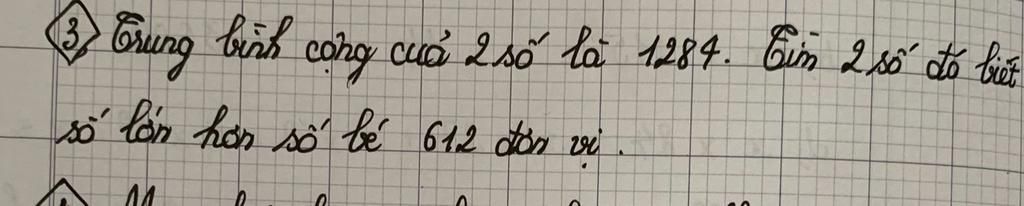 3, Trung bình cộng của 2 số là 1284. Tìm 2 số đó biết
số lớn hơn số bé 612 đơn vị.